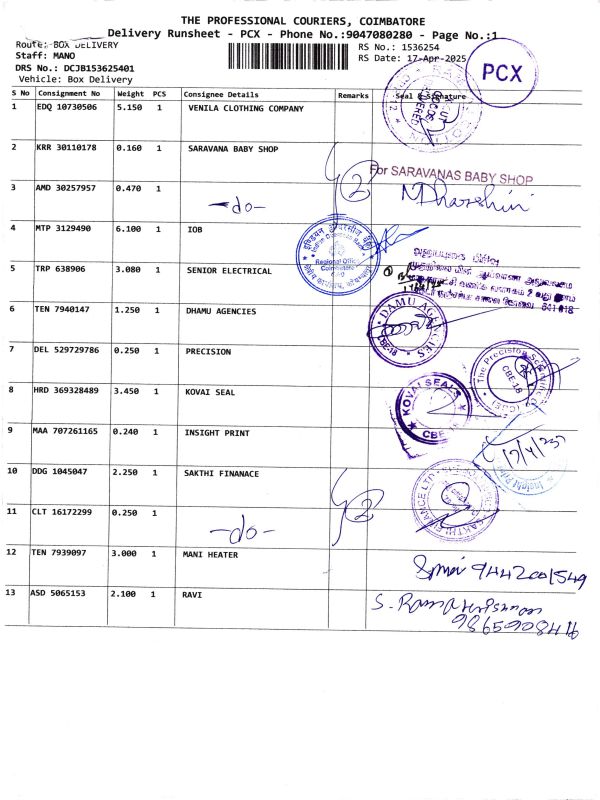 THE PROFESSIONAL COURIERS, COIMBATORE
Delivery Runsheet - PCX - Phone No.:9047080280 - Page No.:1
Route: BOX DELIVERY
RS No.: 1536254
Staff: MANO
RS Date: 17-Apr-2025
DRS No.: DCJB153625401
Vehicle: Box Delivery
PCX
S No Consignment No Weight PCS Consignee Details Remarks Seal & Signature
1 EDQ 10730506 5.150 1 VENILA CLOTHING COMPANY
2 KRR 30110178 0.160 1 SARAVANA BABY SHOP
For SARAVANAS BABY SHOP
3 AMD 30257957 0.470 1 -do- 2
4 MTP 3129490 6.100 1 IOB
Regional Office
Coimbatore
5 TRP 638906 3.080 1 SENIOR ELECTRICAL
641 018
6 TEN 7940147 1.250 1 DHAMU AGENCIES
DAMU AGENCIES
CBE-18
7 DEL 529729786 0.250 1 PRECISION
The Precision Scientific Co (CBE)
CBE-18
8 HRD 369328489 3.450 1 KOVAI SEAL
KOVAI SEALS
CBE-18
9 MAA 707261165 0.240 1 INSIGHT PRINT
17/4/25
10 DDG 1045047 2.250 1 SAKTHI FINANACE
SAKTHI FINANCE LTD
11 CLT 16172299 0.250 1 -do- 2
12 TEN 7939097 3.000 1 MANI HEATER
9442001549
13 ASD 5065153 2.100 1 RAVI
S. Ramakrishnan